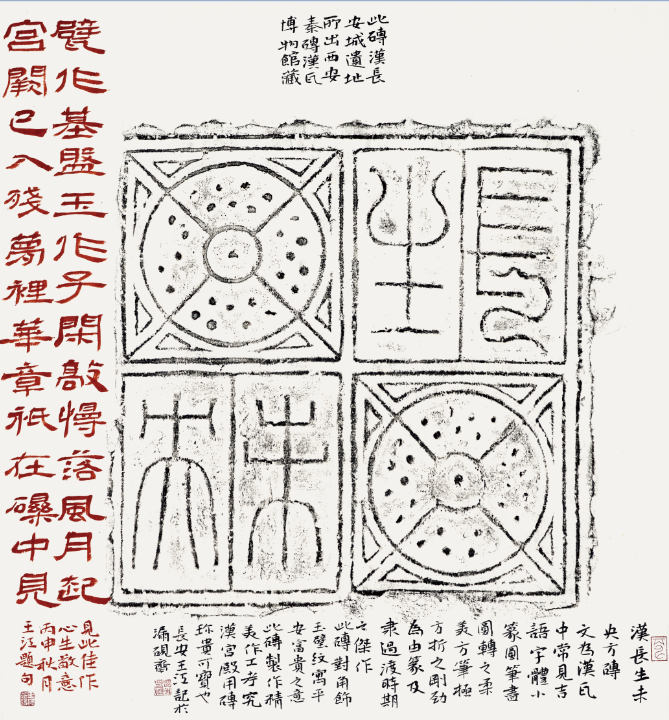 此磚漢長
安城遺址
所出西安
秦磚漢瓦
博物館藏
長生
未央
甓作基盤玉作子閑敲慢落風月起
宮闕已入殘萬裡華章祇在磉中見
見此佳作
心生敬意
丙申秋月
王江題句
漢長生未
央方磚
文為漢瓦
中常見吉
語字體小
篆圓筆書
圓轉之柔
美方筆極
方折之剛勁
為由篆及
隸過渡時期
之傑作
此磚對角飾
玉璧紋寓平
安富貴之意
此磚製作精
美作工考究
漢宮殿用磚
珍貴可寶也
長安王江記於
漏硯齋